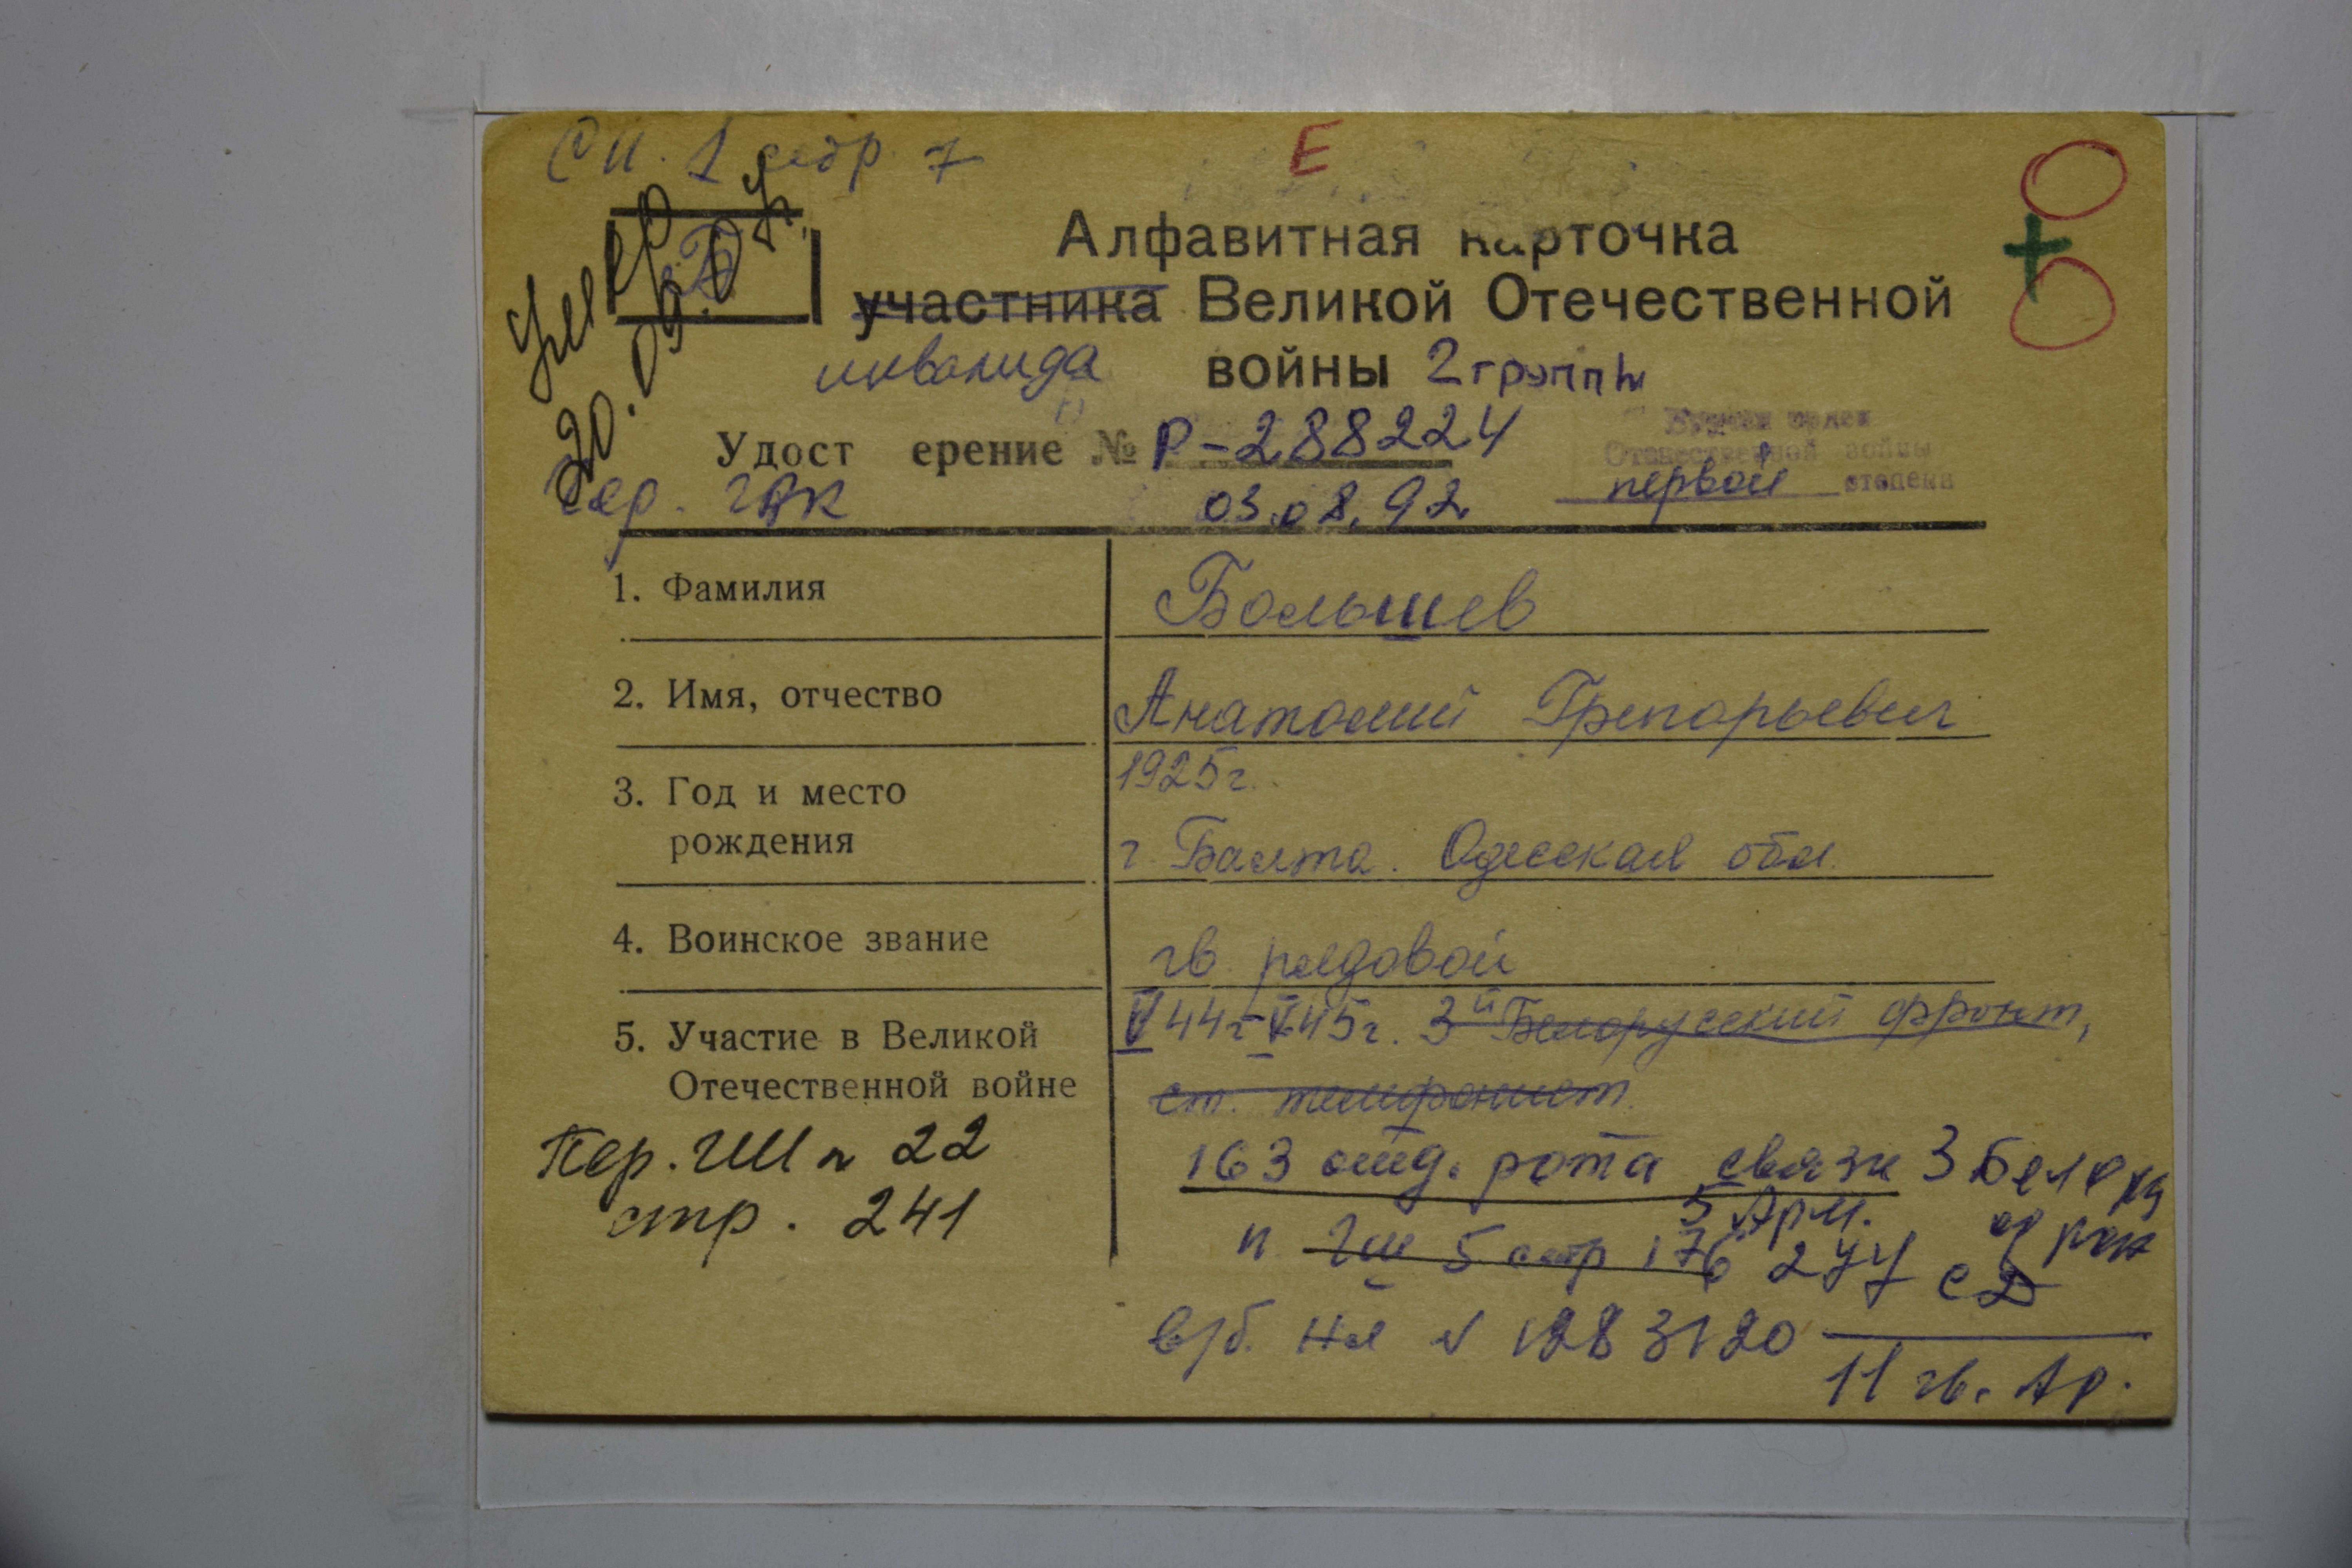 Сп. 1 стр 7
Е
Умер
20.09.04.
Б
Алфавитная карточка
участника Великой Отечественной
инвалида войны 2 группы
Удост ерение № Р-288224
Вручен орден
Отечественной войны
первой степени
03.08.92
1. Фамилия
Большев
2. Имя, отчество
Анатолий Григорьевич
3. Год и место
рождения
1925г.
г. Балта. Одесская обл.
4. Воинское звание
гв. рядовой
5. Участие в Великой
Отечественной войне
V 44г-V 45г. 3й Белорусский фронт,
ст. телефонист
163 отд. рота связи 3 Белору
5 Арм.
стр 176
СД
в/б. № 1283120
11 гв. Ар.
Пер. 22
стр. 241